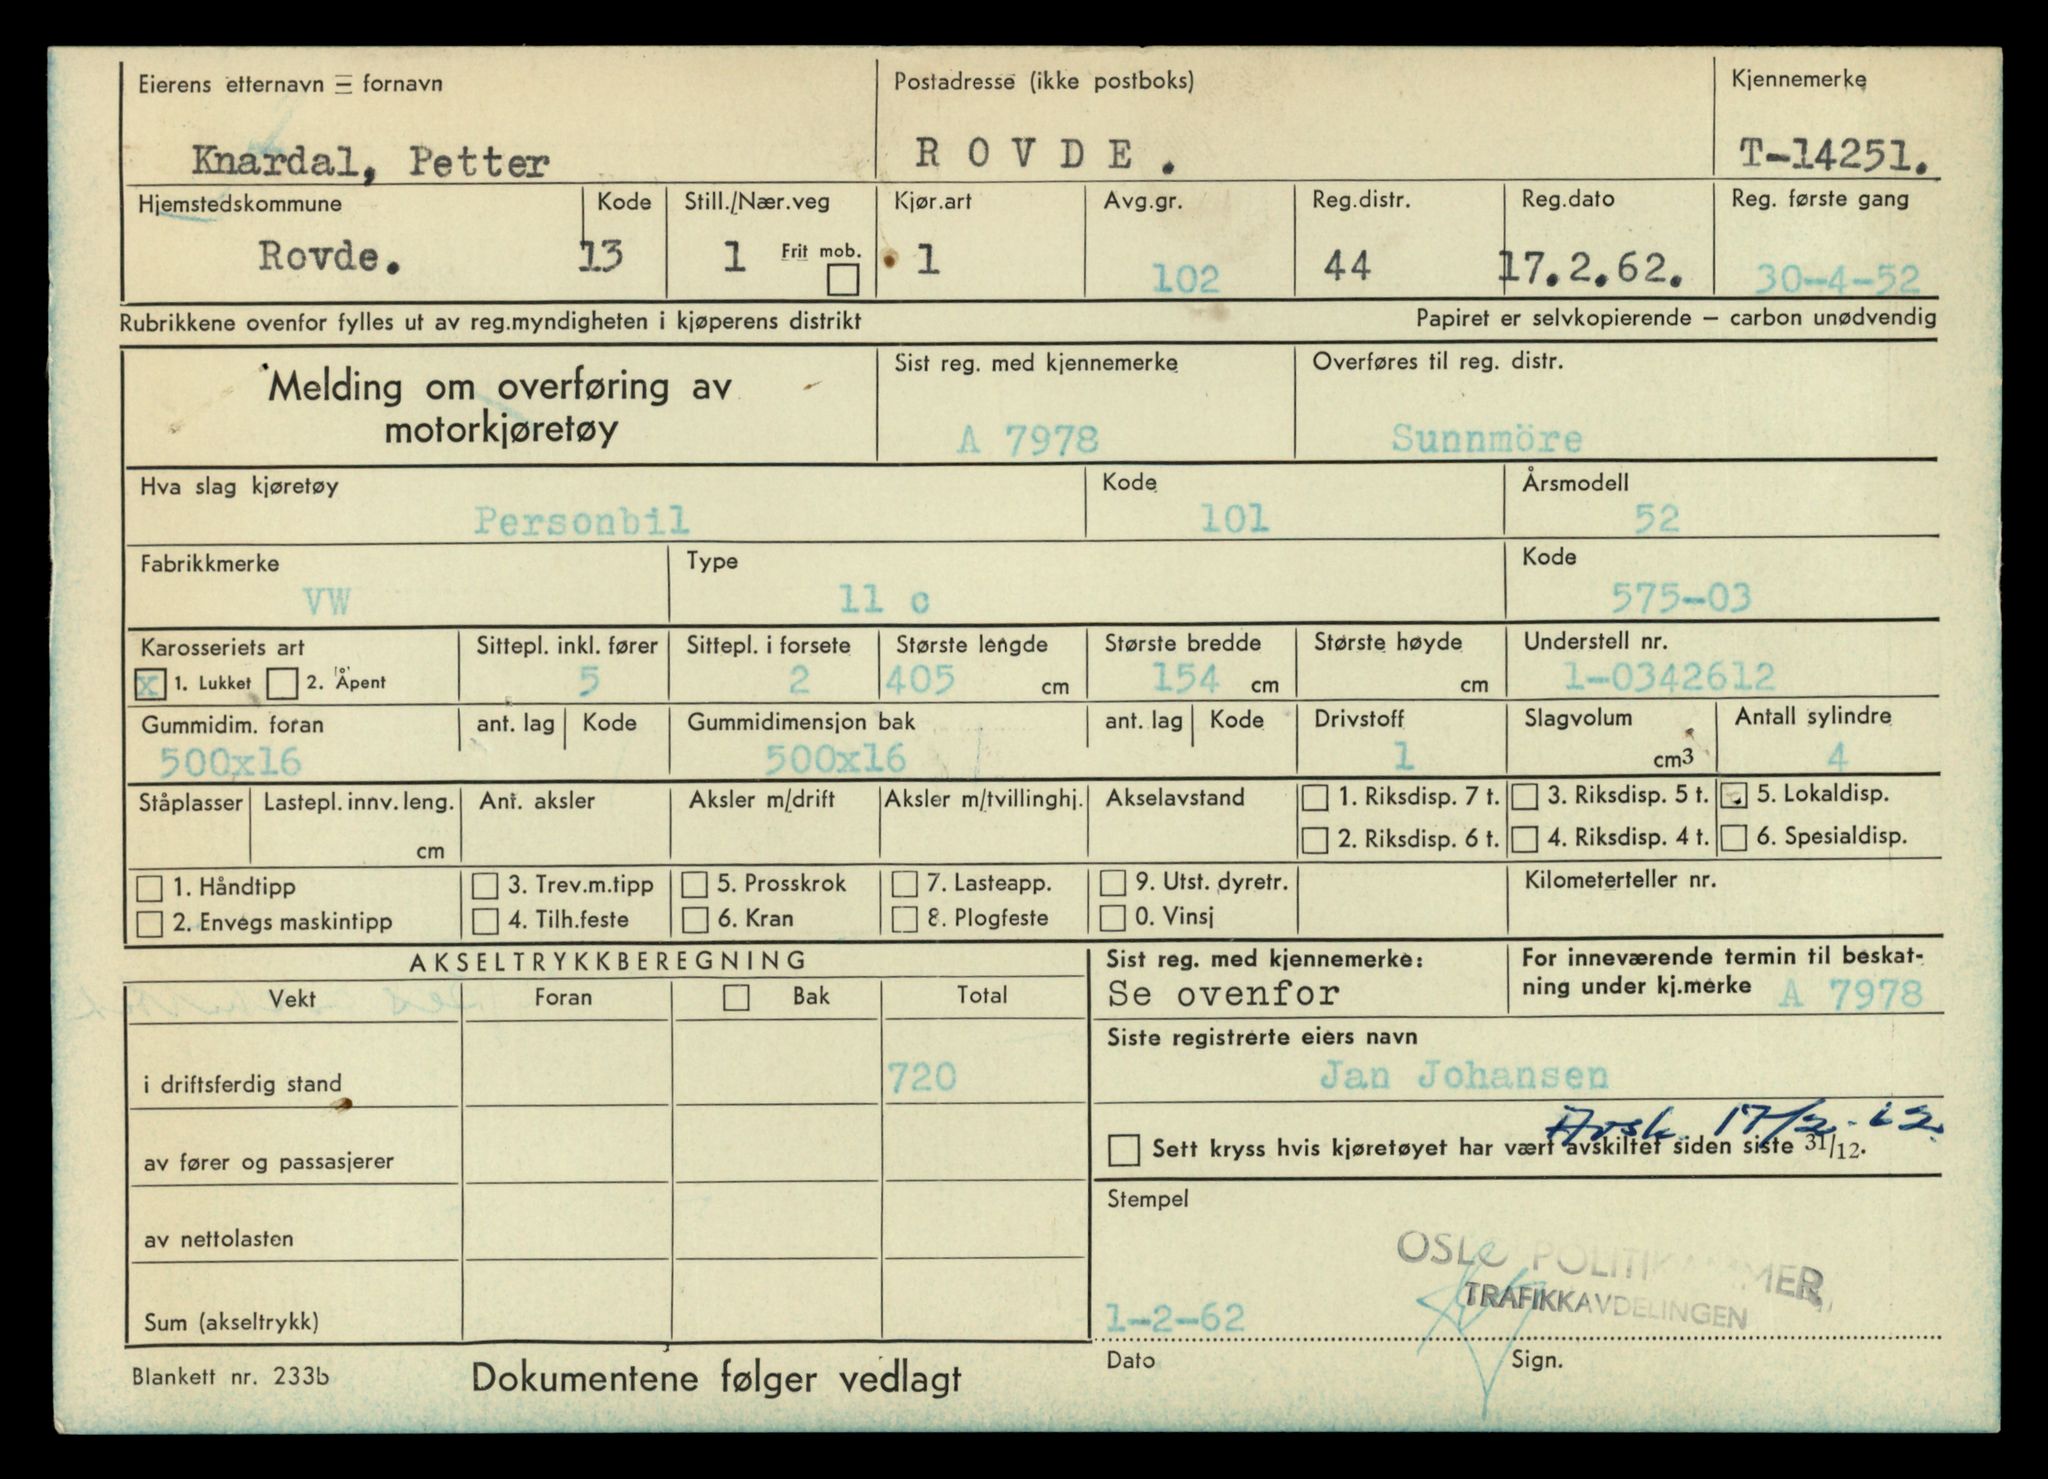 Eierens etternavn — fornavn
Postadresse (ikke postboks)
Kjennemerke
Knardal, Petter
ROVDE.
T-14251.
Hjemstedskommune Kode Still./Nær.veg Kjør.art Avg.gr. Reg.distr. Reg.dato Reg. første gang
Rovde. 13 1 Frit mob. 1 102 44 17.2.62. 30-4-52
Rubrikkene ovenfor fylles ut av reg.myndigheten i kjøperens distrikt
Papiret er selvkopierende – carbon unødvendig
Melding om overføring av
motorkjøretøy
Sist reg. med kjennemerke
A 7978
Overføres til reg. distr.
Sunnmöre
Hva slag kjøretøy Kode Årsmodell
Personbil 101 52
Fabrikkmerke Type Kode
VW 11 c 575-03
Karosseriets art Sittepl. inkl. fører Sittepl. i forsete Største lengde Største bredde Største høyde Understell nr.
x 1. Lukket 2. Åpent 5 2 405 cm 154 cm cm 1-0342612
Gummidim. foran ant. lag Kode Gummidimensjon bak ant. lag Kode Drivstoff Slagvolum Antall sylindre
500x16 500x16 1 cm3 4
Ståplasser Lastepl. innv. leng. Ant. aksler Aksler m/drift Aksler m/tvillinghj. Akselavstand 1. Riksdisp. 7 t. 3. Riksdisp. 5 t. 5. Lokaldisp.
cm 2. Riksdisp. 6 t. 4. Riksdisp. 4 t. 6. Spesialdisp.
1. Håndtipp 3. Trev.m.tipp 5. Prosskrok 7. Lasteapp. 9. Utst. dyretr. Kilometerteller nr.
2. Envegs maskintipp 4. Tilh.feste 6. Kran 8. Plogfeste 0. Vinsj
AKSELTRYKKBEREGNING
Vekt Foran Bak Total
i driftsferdig stand 720
av fører og passasjerer
av nettolasten
Sum (akseltrykk)
Sist reg. med kjennemerke:
Se ovenfor
For inneværende termin til beskat-
ning under kj.merke A 7978
Siste registrerte eiers navn
Jan Johansen
Avsk. 17/2-62.
Sett kryss hvis kjøretøyet har vært avskiltet siden siste 31/12.
Stempel
OSLO POLITIKAMMER,
TRAFIKKAVDELINGEN
1-2-62
Dato Sign.
Blankett nr. 233b
Dokumentene følger vedlagt